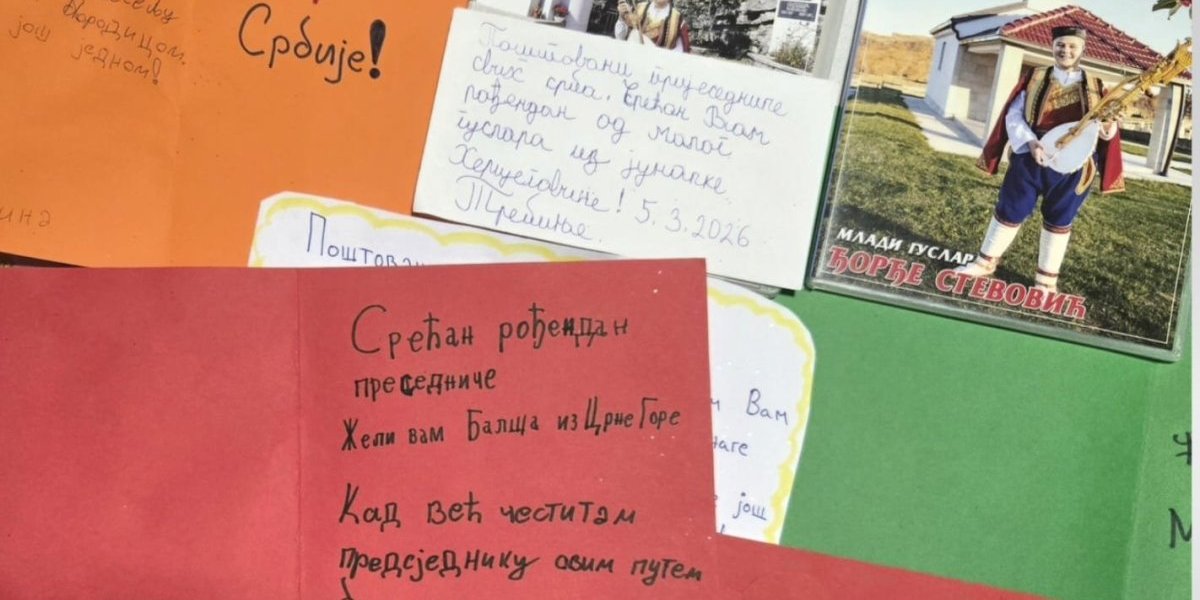 Бородицом,
још једном!
Србије!
Поштовани пријеседниче
свих срба. Срећан Вам
рођендан од малог
гуслара из јуначке
Херцеговине! 5.3.2026
Требиње.
МЛАДИ ГУСЛАР
ЂОРЂЕ СТЕВОВИЋ
Срећан рођендан
преседниче
Жели вам Балша из Црне Горе
Кад већ честитам
предсједнику овим путем
Вам
још